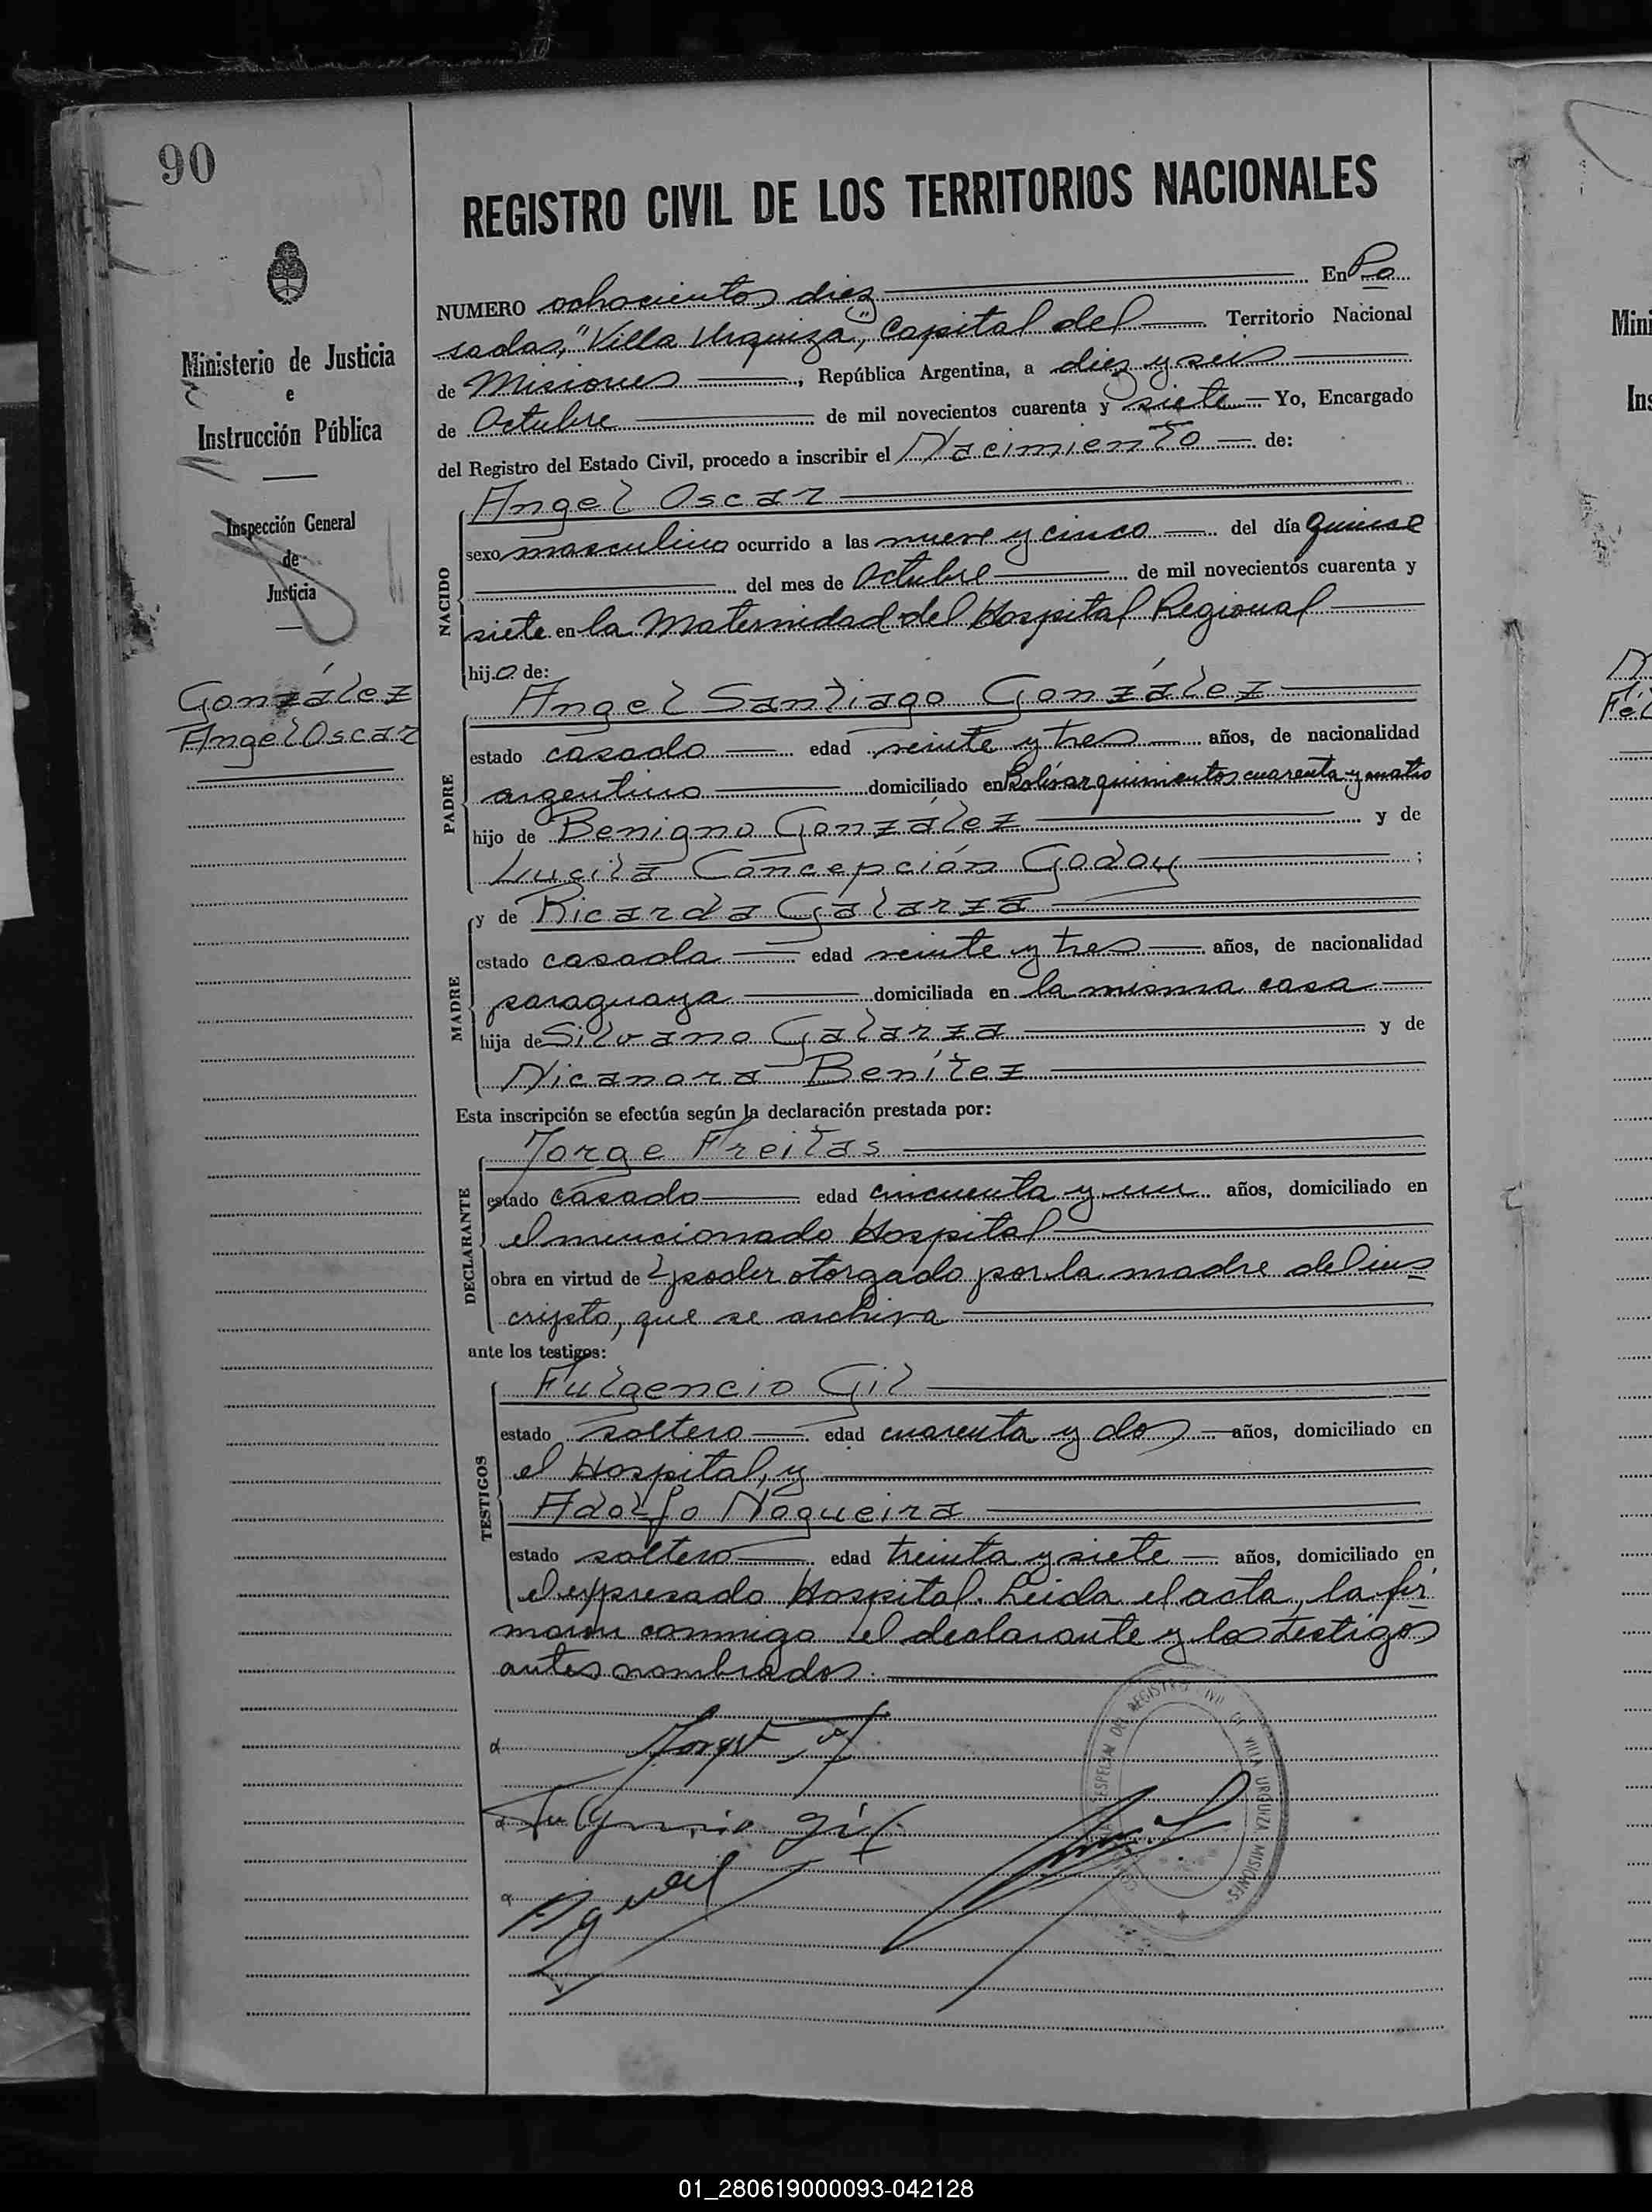 90
REGISTRO CIVIL DE LOS TERRITORIOS NACIONALES
Ministerio de Justicia
e
Instrucción Pública
Inspección General
de
Justicia
González
Angel Oscar
NUMERO ochocientos diez En Po
sadas, "Villa Urquiza", Capital del Territorio Nacional
de Misiones, República Argentina, a diez y seis
de Octubre de mil novecientos cuarenta y siete Yo, Encargado
del Registro del Estado Civil, procedo a inscribir el Nacimiento de:
NACIDO
Angel Oscar
sexo masculino ocurrido a las nueve y cinco del día quince
del mes de Octubre de mil novecientos cuarenta y
siete en la Maternidad del Hospital Regional
hijo de:
PADRE
Angel Santiago González
estado casado edad veinte y tres años, de nacionalidad
argentino domiciliado en Bolívar quinientos cuarenta y cuatro
hijo de Benigno González y de
Lucila Concepción Godoy;
MADRE
y de Ricarda Galarza
estado casada edad veinte y tres años, de nacionalidad
paraguaya domiciliada en la misma casa
hija de Silvano Galarza y de
Nicanora Benítez
Esta inscripción se efectúa según la declaración prestada por:
DECLARANTE
Jorge Freitas
estado casado edad cincuenta y un años, domiciliado en
el mencionado Hospital
obra en virtud de poder otorgado por la madre del ins
cripto, que se archiva
ante los testigos:
TESTIGOS
Fulgencio Gil
estado soltero edad cuarenta y dos años, domiciliado en
el Hospital, y
Adolfo Nogueira
estado soltero edad treinta y siete años, domiciliado en
el expresado Hospital. Leida el acta, la fir
maron conmigo el declarante y los testigos
antes nombrados.
Fulgencio Gil
ESPECIAL DEL REGISTRO CIVIL VILLA URQUIZA MISIONES
01_280619000093-042128